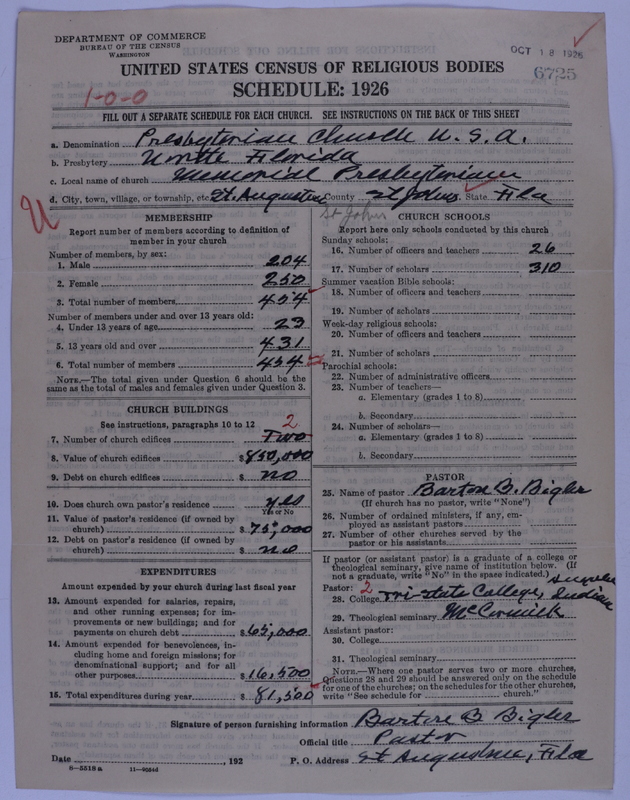 DEPARTMENT OF COMMERCE
BUREAU OF THE CENSUS
WASHINGTON
OCT 18 1926
6725
UNITED STATES CENSUS OF RELIGIOUS BODIES
SCHEDULE: 1926
1-0-0
FILL OUT A SEPARATE SCHEDULE FOR EACH CHURCH. SEE INSTRUCTIONS ON THE BACK OF THIS SHEET
a. Denomination Presbyterian Church U. S. A.
b. Presbytery North Florida
c. Local name of church Memorial Presbyterian
d. City, town, village, or township, etc. St. Augustine County St Johns State Fla
St Johns
MEMBERSHIP
Report number of members according to definition of member in your church
Number of members, by sex:
1. Male 204
2. Female 250
3. Total number of members 454
Number of members under and over 13 years old:
4. Under 13 years of age 23
5. 13 years old and over 431
6. Total number of members 454
NOTE.—The total given under Question 6 should be the
same as the total of males and females given under Question 3.
CHURCH BUILDINGS
See instructions, paragraphs 10 to 12
2
7. Number of church edifices Two
8. Value of church edifices $850,000
9. Debt on church edifices $ no
10. Does church own pastor's residence yes
Yes or No
11. Value of pastor's residence (if owned by
church) $75,000
12. Debt on pastor's residence (if owned by
church) $ no
EXPENDITURES
Amount expended by your church during last fiscal year
13. Amount expended for salaries, repairs,
and other running expenses; for im-
provements or new buildings; and for
payments on church debt $65,000
14. Amount expended for benevolences, in-
cluding home and foreign missions; for
denominational support; and for all
other purposes $16,500
15. Total expenditures during year $81,500
CHURCH SCHOOLS
Report here only schools conducted by this church
Sunday schools:
16. Number of officers and teachers 26
17. Number of scholars 310
Summer vacation Bible schools:
18. Number of officers and teachers
19. Number of scholars
Week-day religious schools:
20. Number of officers and teachers
21. Number of scholars
Parochial schools:
22. Number of administrative officers
23. Number of teachers—
a. Elementary (grades 1 to 8)
b. Secondary
24. Number of scholars—
a. Elementary (grades 1 to 8)
b. Secondary
PASTOR
25. Name of pastor Barton B. Bigler
(If church has no pastor, write "None")
26. Number of ordained ministers, if any, em-
ployed as assistant pastors
27. Number of other churches served by the
pastor or his assistants
If pastor (or assistant pastor) is a graduate of a college or
theological seminary, give name of institution below. (If
not a graduate, write "No" in the space indicated.)
Pastor: 2
28. College Tri-State College, Indiana
29. Theological seminary McCormick
Assistant pastor:
30. College
31. Theological seminary
NOTE.—Where one pastor serves two or more churches,
Questions 28 and 29 should be answered only on the schedule
for one of the churches; on the schedules for the other churches,
write "See schedule for church."
Signature of person furnishing information Barton B Bigler
Official title Pastor
Date , 192 P. O. Address St Augustine, Fla
8-5518a 11-9564d